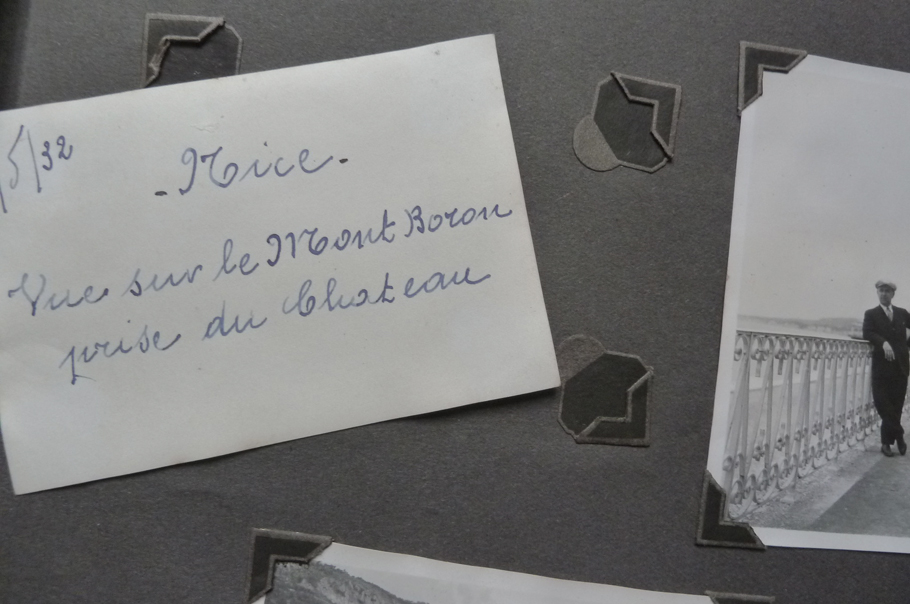 /5/32
- Nice. -
Vue sur le Mont Boron
prise du Chateau